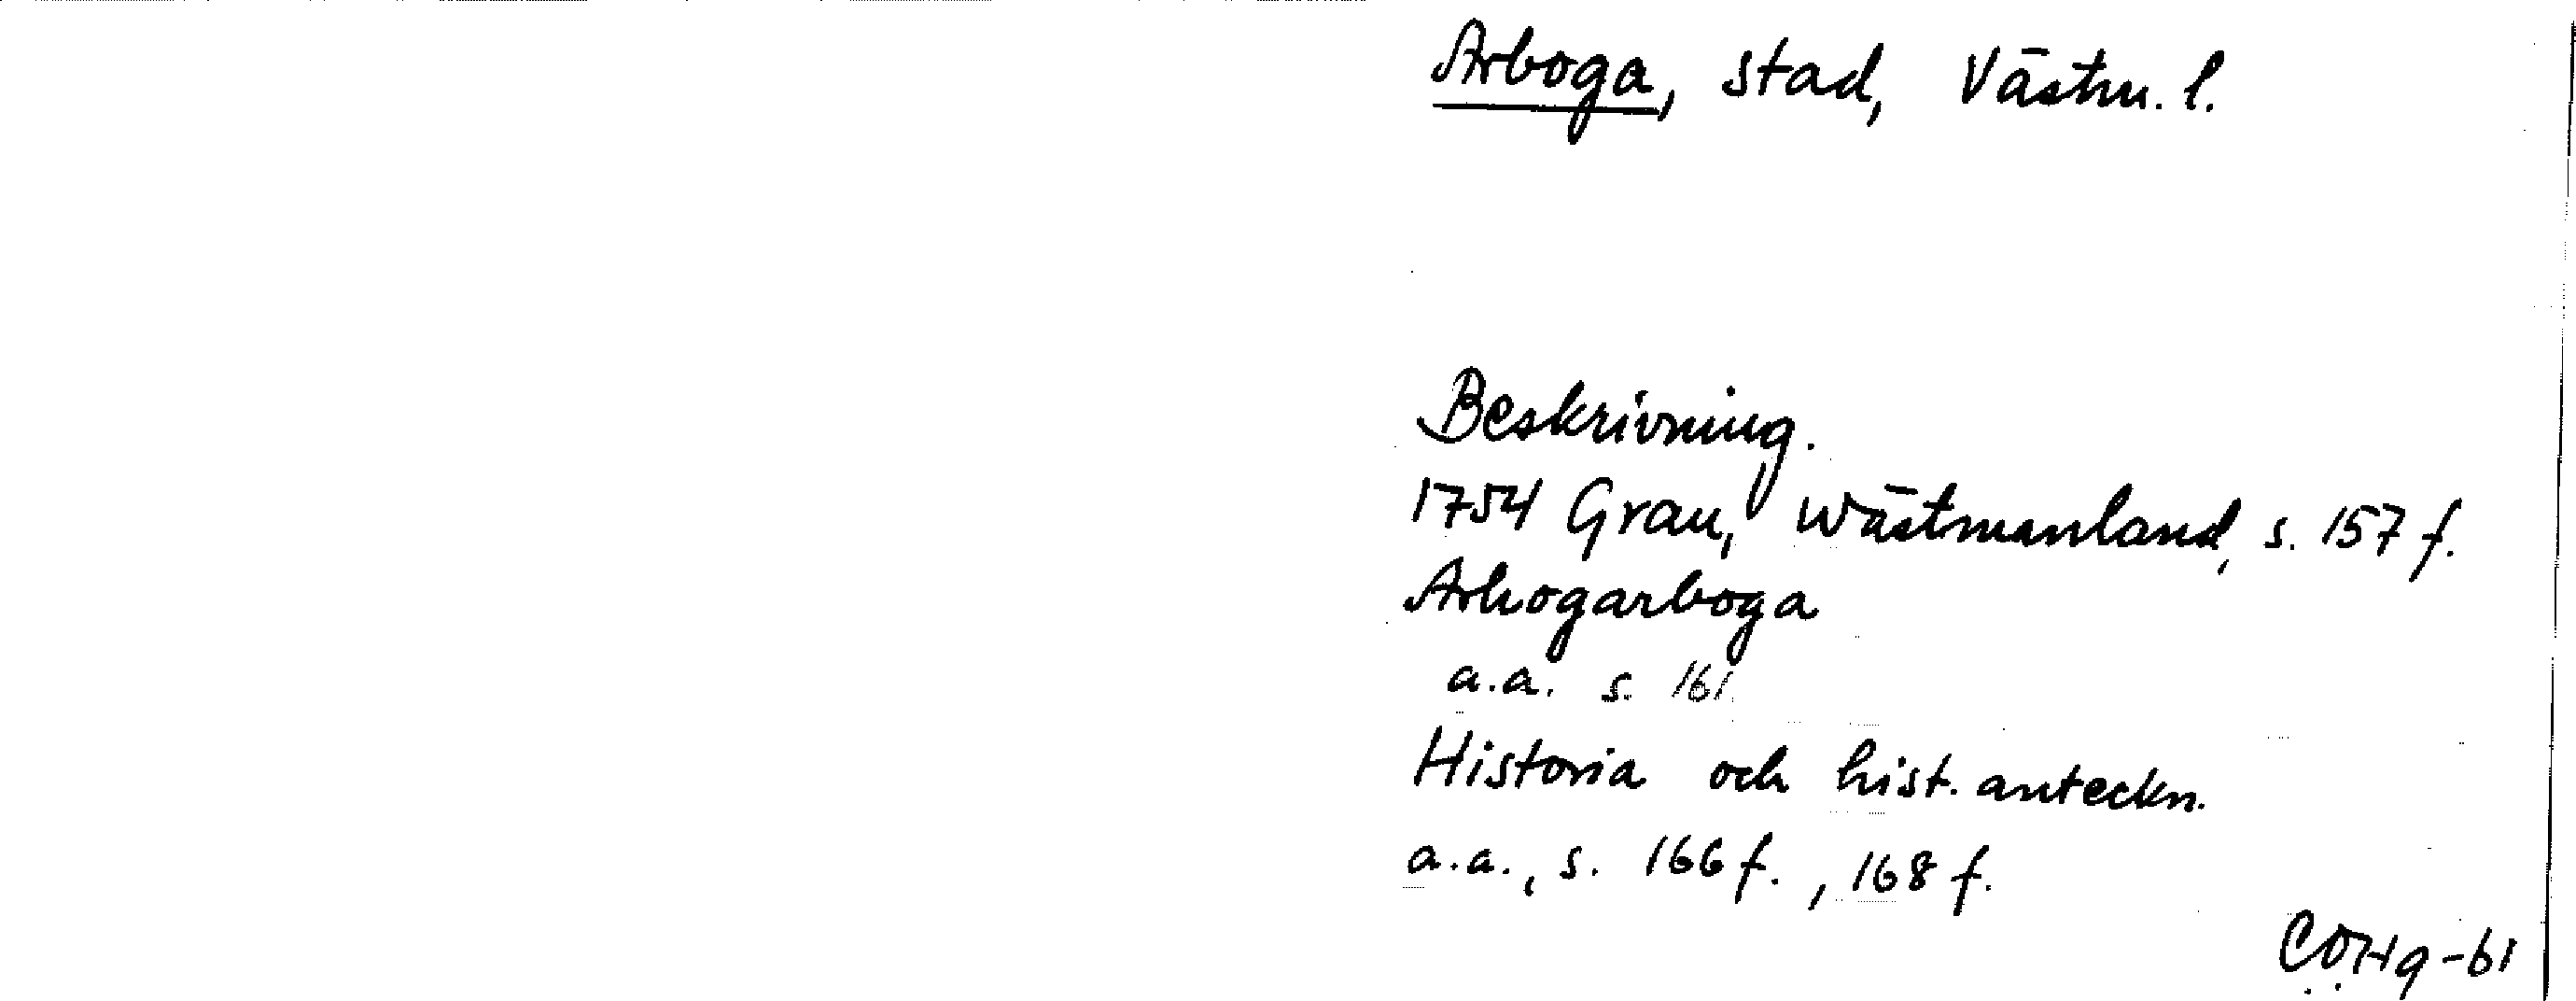 Arboga, stad, Västm. l.
Beskrivning.
1754 Grau, Wästmanland, s. 157 f.
Arhogarboga
a.a. s. 161
Historia och hist. anteckn.
a.a., s. 166 f., 168 f.
CÖHg-61